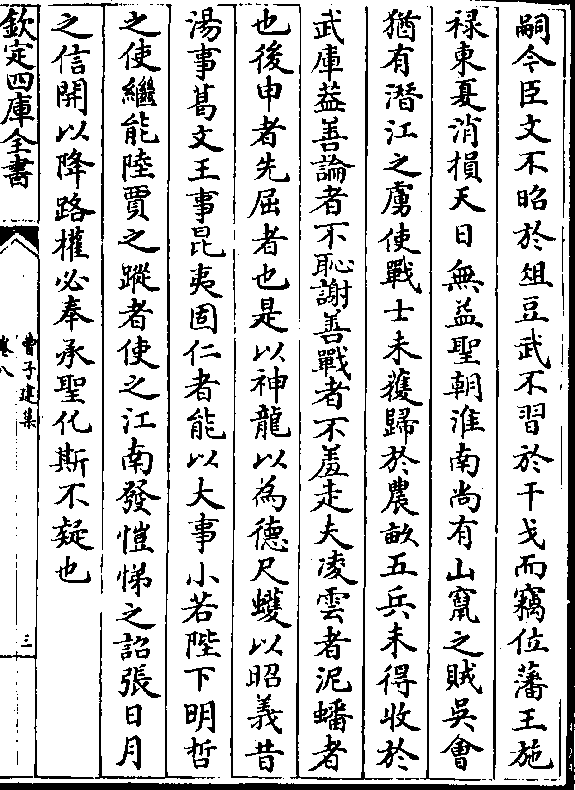 嗣今臣文不昭於俎豆武不習於干戈而竊位藩王施
禄東夏消損天日無益聖朝淮南尚有山竄之賊吳會
猶有潛江之虜使戰士未獲歸於農畝五兵未得收於
武庫葢善論者不恥謝善戰者不羞走夫凌雲者泥蟠者
也後申者先屈者也是以神龍以為德尺蠖以昭義昔
湯事葛文王事昆夷固仁者能以大事小若陛下明哲
之使繼能陸賈之蹤者使之江南發愷悌之詔張日月
之信開以降路權必奉承聖化斯不疑也
欽定四庫全書
曹子建集
卷八
三